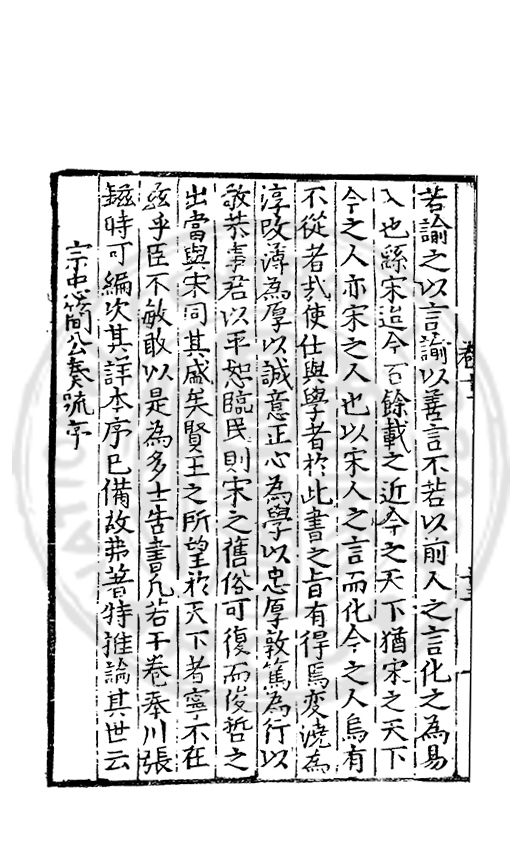 若諭之以言諭以善言不若以前人之言化之為易
入也繇宋迨今百餘載之近今之天下猶宋之天下
今之人亦宋之人也以宋人之言而化今之人烏有
不從者哉使仕與學者於此書之旨有得焉變澆為
淳改薄為厚以誠意正心為學以忠厚敦篤為行以
敬恭事君以平恕臨民則宋之舊俗可復而俊哲之
出當與宋同其盛矣賢王之所望於天下者寧不在
茲乎臣不敏敢以是為多士告書凡若干卷奉川張
鎡時可編次其詳本序已備故弗著特推論其世云
宗忠簡公奏疏序
卷十二
十三